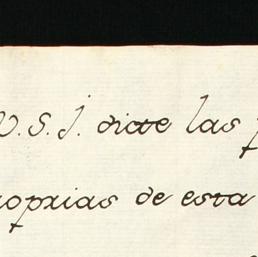 V. S. J. dicte las
roprias de esta